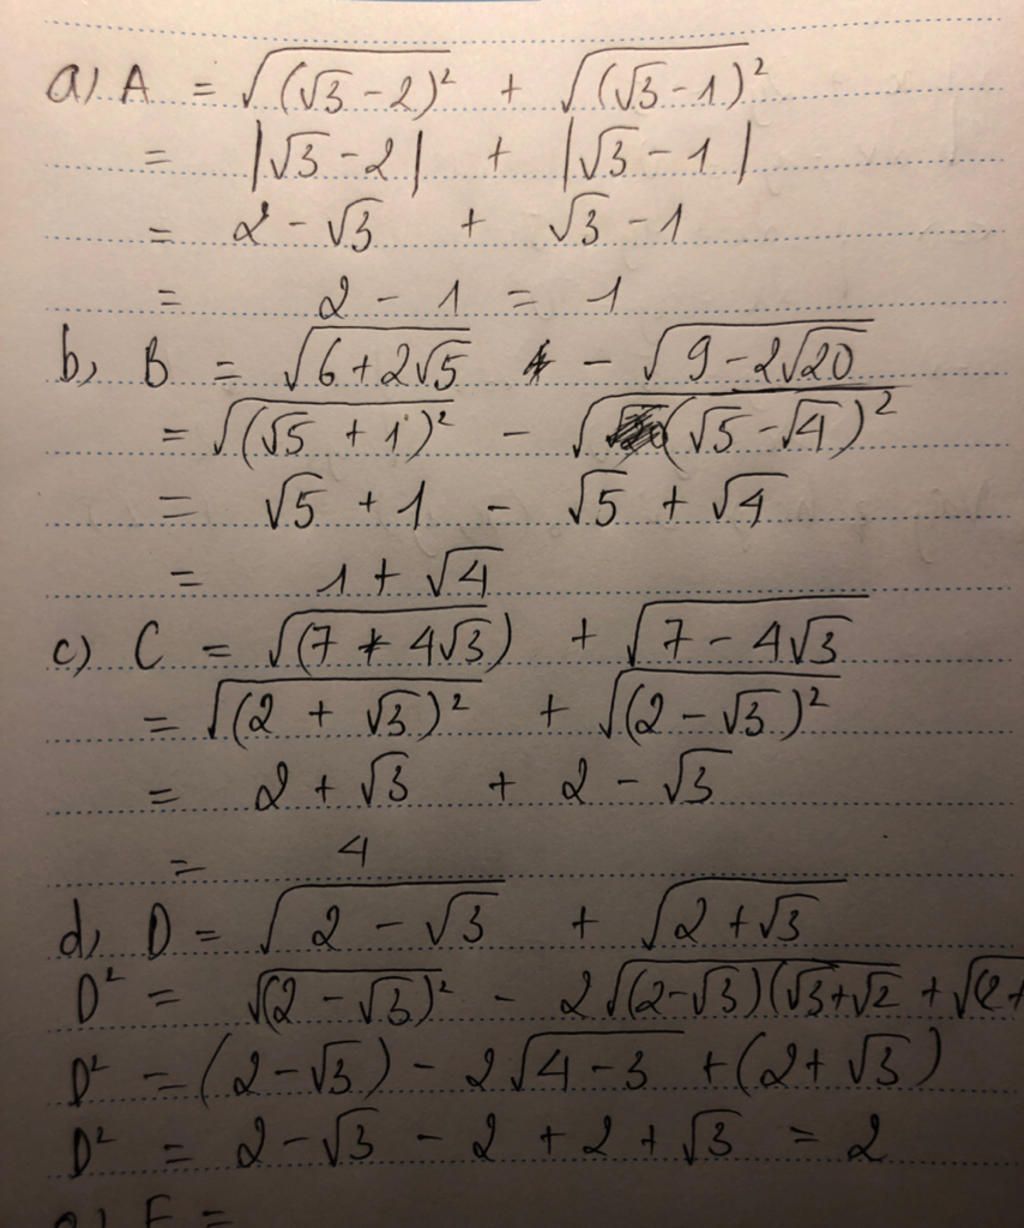 a) A = √(√3 - 2)² + √(√3 - 1)²
= |√3 - 2| + |√3 - 1|
= 2 - √3 + √3 - 1
= 2 - 1 = 1
b, B = √(6 + 2√5) - √(9 - 2√20)
= √(√5 + 1)² - √(√5 - √4)²
= √5 + 1 - √5 + √4
= 1 + √4
c) C = √(7 + 4√3) + √(7 - 4√3)
= √(2 + √3)² + √(2 - √3)²
= 2 + √3 + 2 - √3
= 4
d, D = √(2 - √3) + √(2 + √3)
D² = √(2 - √3)² - 2√(2-√3)(√3+√2 + √(2+
D² = (2 - √3) - 2√(4 - 3) + (2 + √3)
D² = 2 - √3 - 2 + 2 + √3 = 2